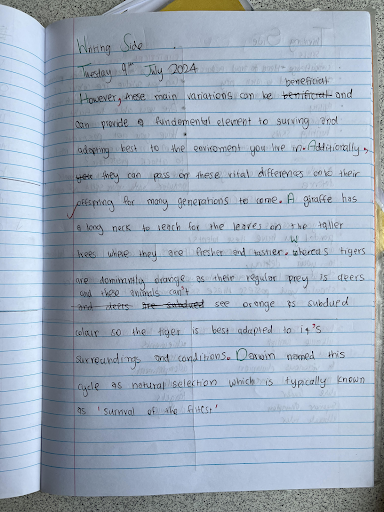 Writing Side
Tuesday 9th July 2024
beneficial
However, these main variations can be benificial and
can provide a fundamental element to surving and
adapting best to the enviroment you live in. Additionally,
they can pass on these vital differences onto their
offspring for many generations to come. A giraffe has
a long neck to reach for the leaves on the taller
trees where they are fresher and tastier. Whereas tigers
are dominantly orange as their regular prey is deers
and these animals can't
and deers are subdued see orange as subdued
colour so the tiger is best adapted to it's
surroundings and conditions. Darwin named this
cycle as natural selection which is typically known
as 'survival of the fittest'